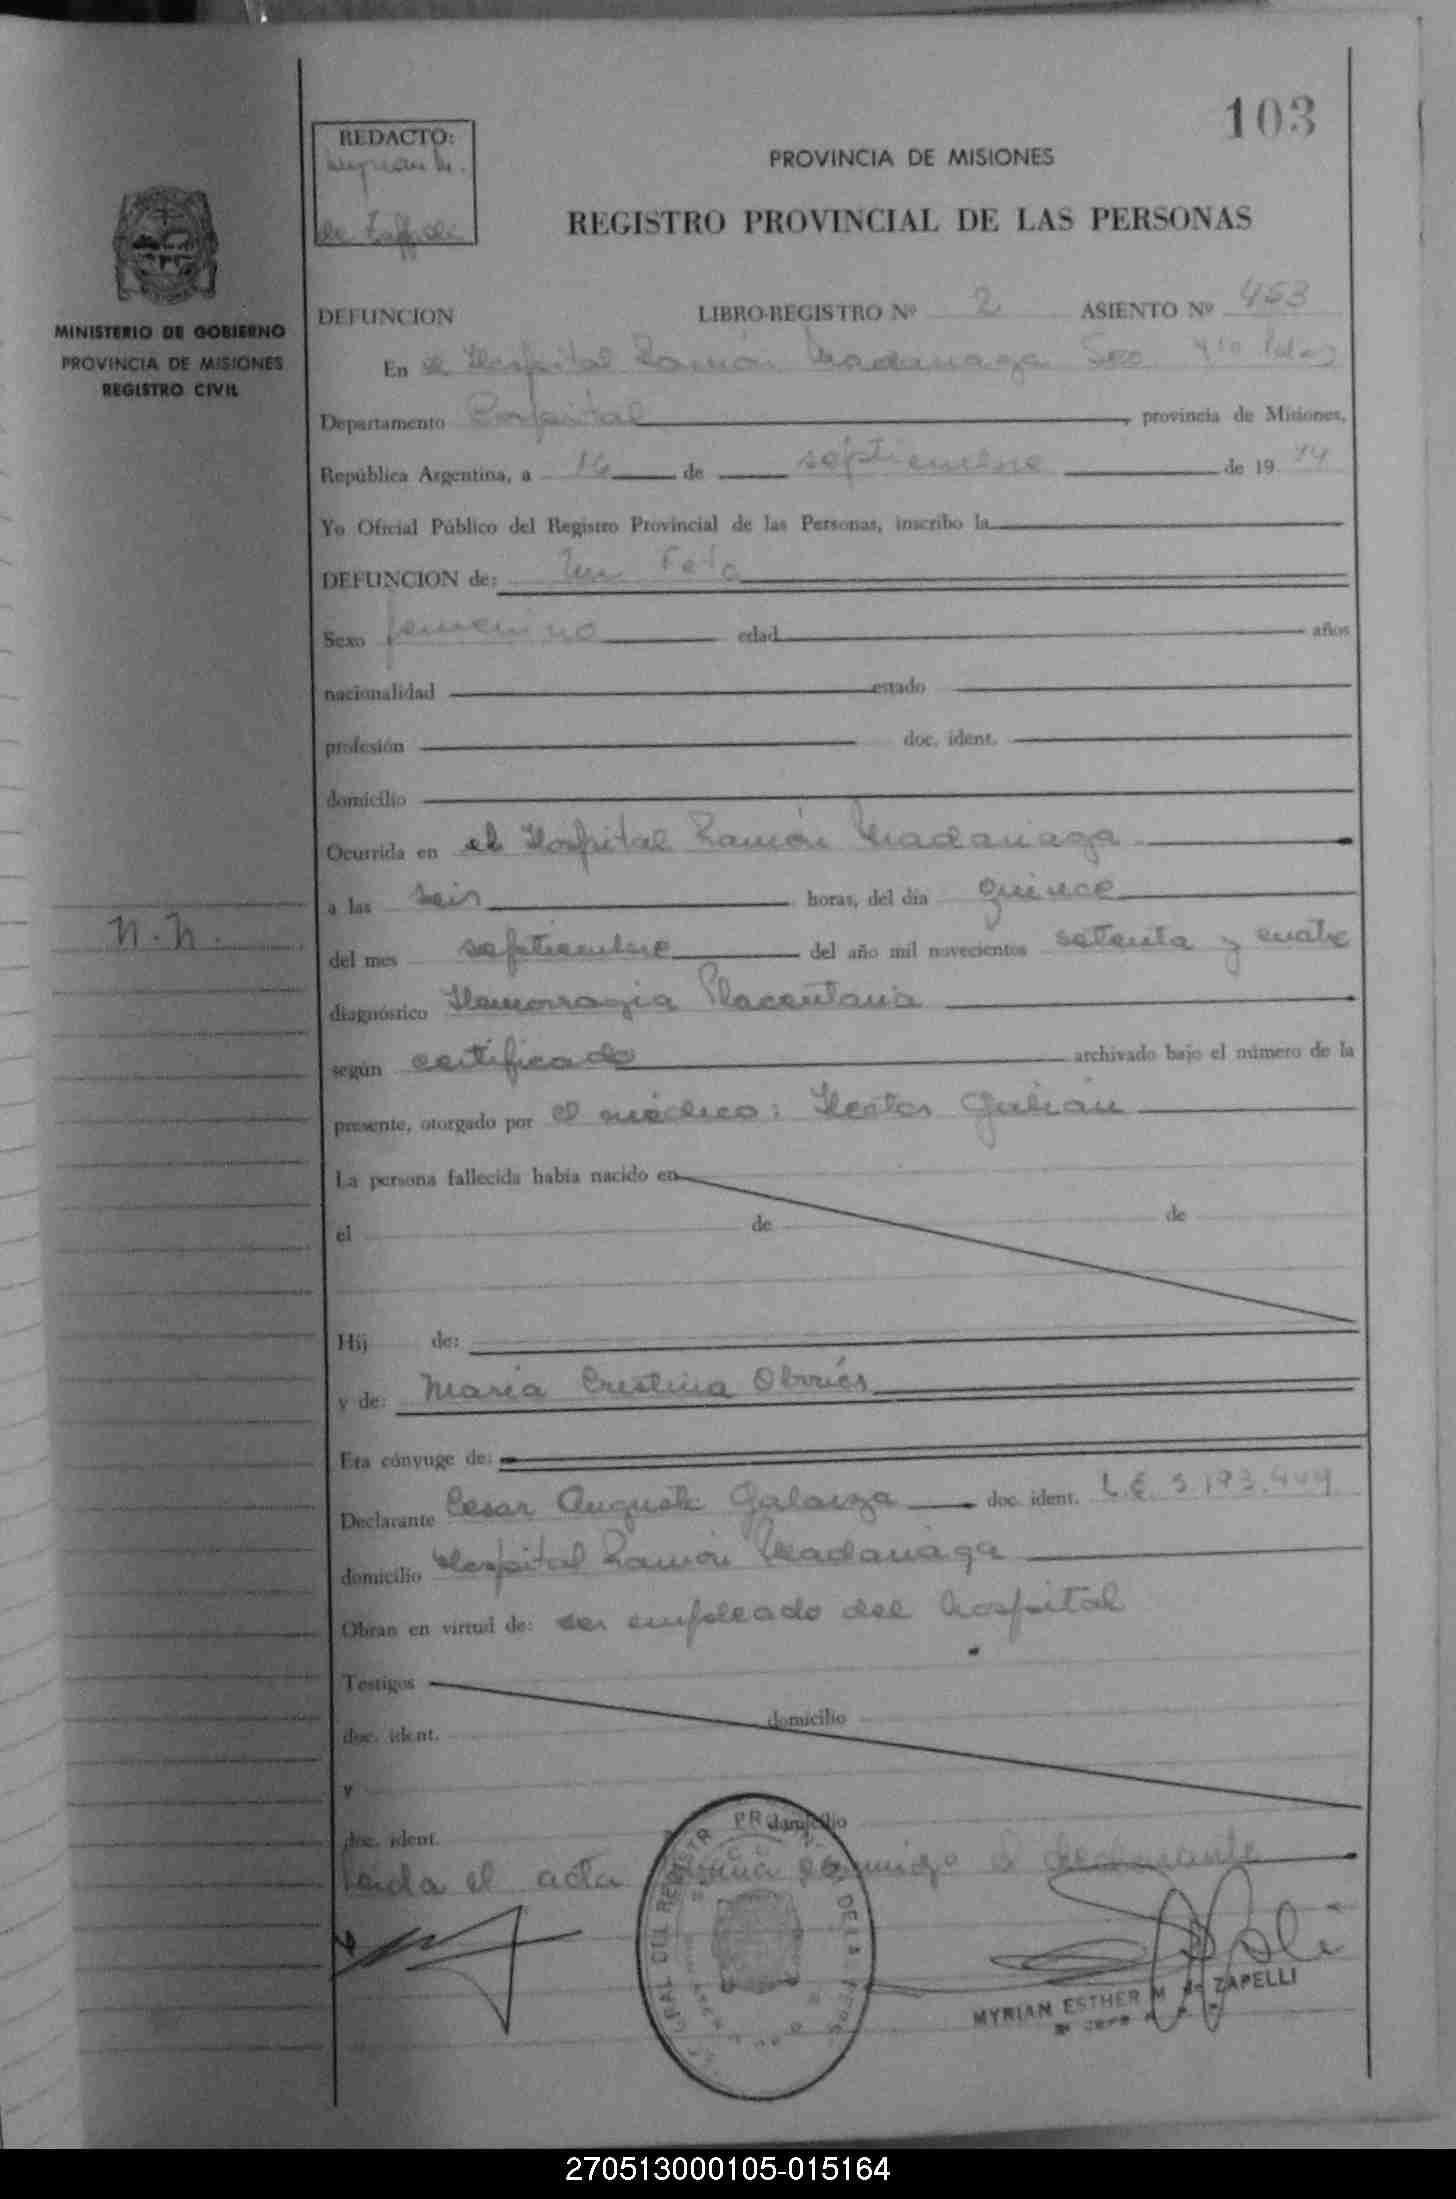 103
REDACTO:
PROVINCIA DE MISIONES
REGISTRO PROVINCIAL DE LAS PERSONAS
MINISTERIO DE GOBIERNO
PROVINCIA DE MISIONES
REGISTRO CIVIL
DEFUNCION LIBRO-REGISTRO Nº 2 ASIENTO Nº 453
En el Hospital Ramón Madariaga
Departamento provincia de Misiones,
República Argentina, a 16 de septiembre de 19 74
Yo Oficial Público del Registro Provincial de las Personas, inscribo la
DEFUNCION de: Un Feto
Sexo femenino edad años
nacionalidad estado
profesión doc. ident.
domicilio
Ocurrida en el Hospital Ramón Madariaga
a las seis horas, del día quince
N.N.
del mes septiembre del año mil novecientos setenta y cuatro
diagnóstico Hemorragia Placentaria
según certificado archivado bajo el número de la
presente, otorgado por el médico: Hector
La persona fallecida había nacido en
el de de
Hij de:
y de: María Cristina
Era cónyuge de:
Declarante Cesar Augusto Galarza doc. ident. L.E.
domicilio Hospital Ramón Madariaga
Obran en virtud de: ser empleado del hospital
Testigos
doc. ident. domicilio
y
doc. ident. domicilio
Leida el acta firma conmigo el declarante
MYRIAN ESTHER M de ZAPELLI
270513000105-015164